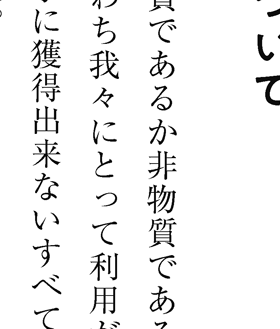 いて
質であるか非物質である
わち我々にとって利用が
に獲得出来ないすべて
。